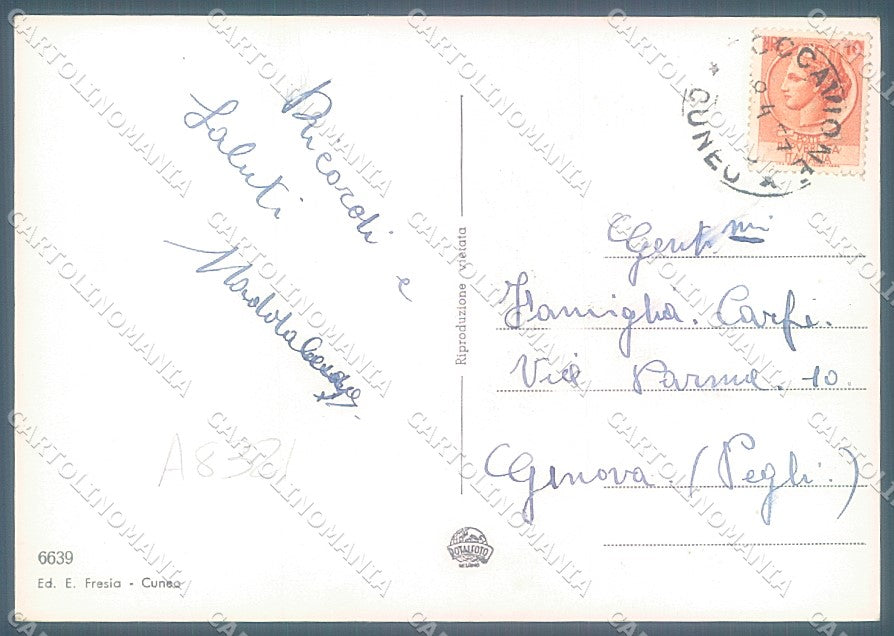 Ricordi e
Saluti
Riproduzione vietata
ROCCAVIONE
* CUNEO *
Gent.mi
Famiglia. Carfì.
Via Parma. 10.
Genova (Pegli.)
A8381
6639
Ed. E. Fresia - Cuneo
ROTALFOTO
MILANO
CARTOLINOMANIA